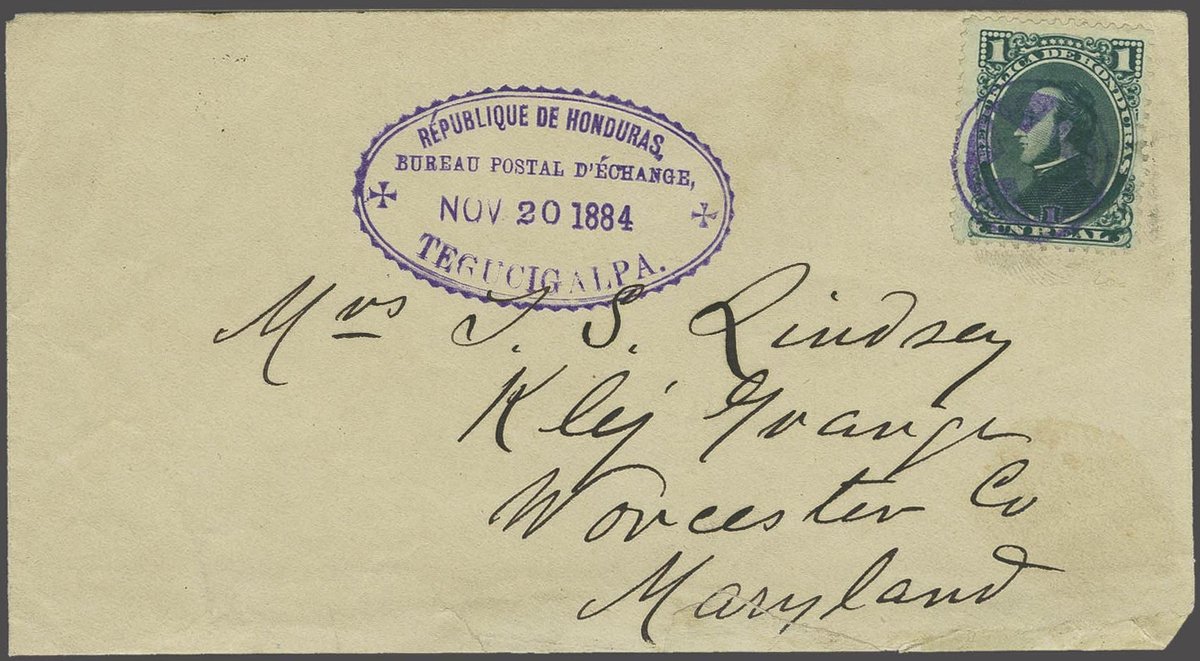 1 1
REPUBLICA DE HONDURAS
1
UN REAL
RÉPUBLIQUE DE HONDURAS,
BUREAU POSTAL D'ÉCHANGE,
NOV 20 1884
TEGUCIGALPA.
Mrs J. S. Lindsey
Klej Grange
Worcester Co
Maryland